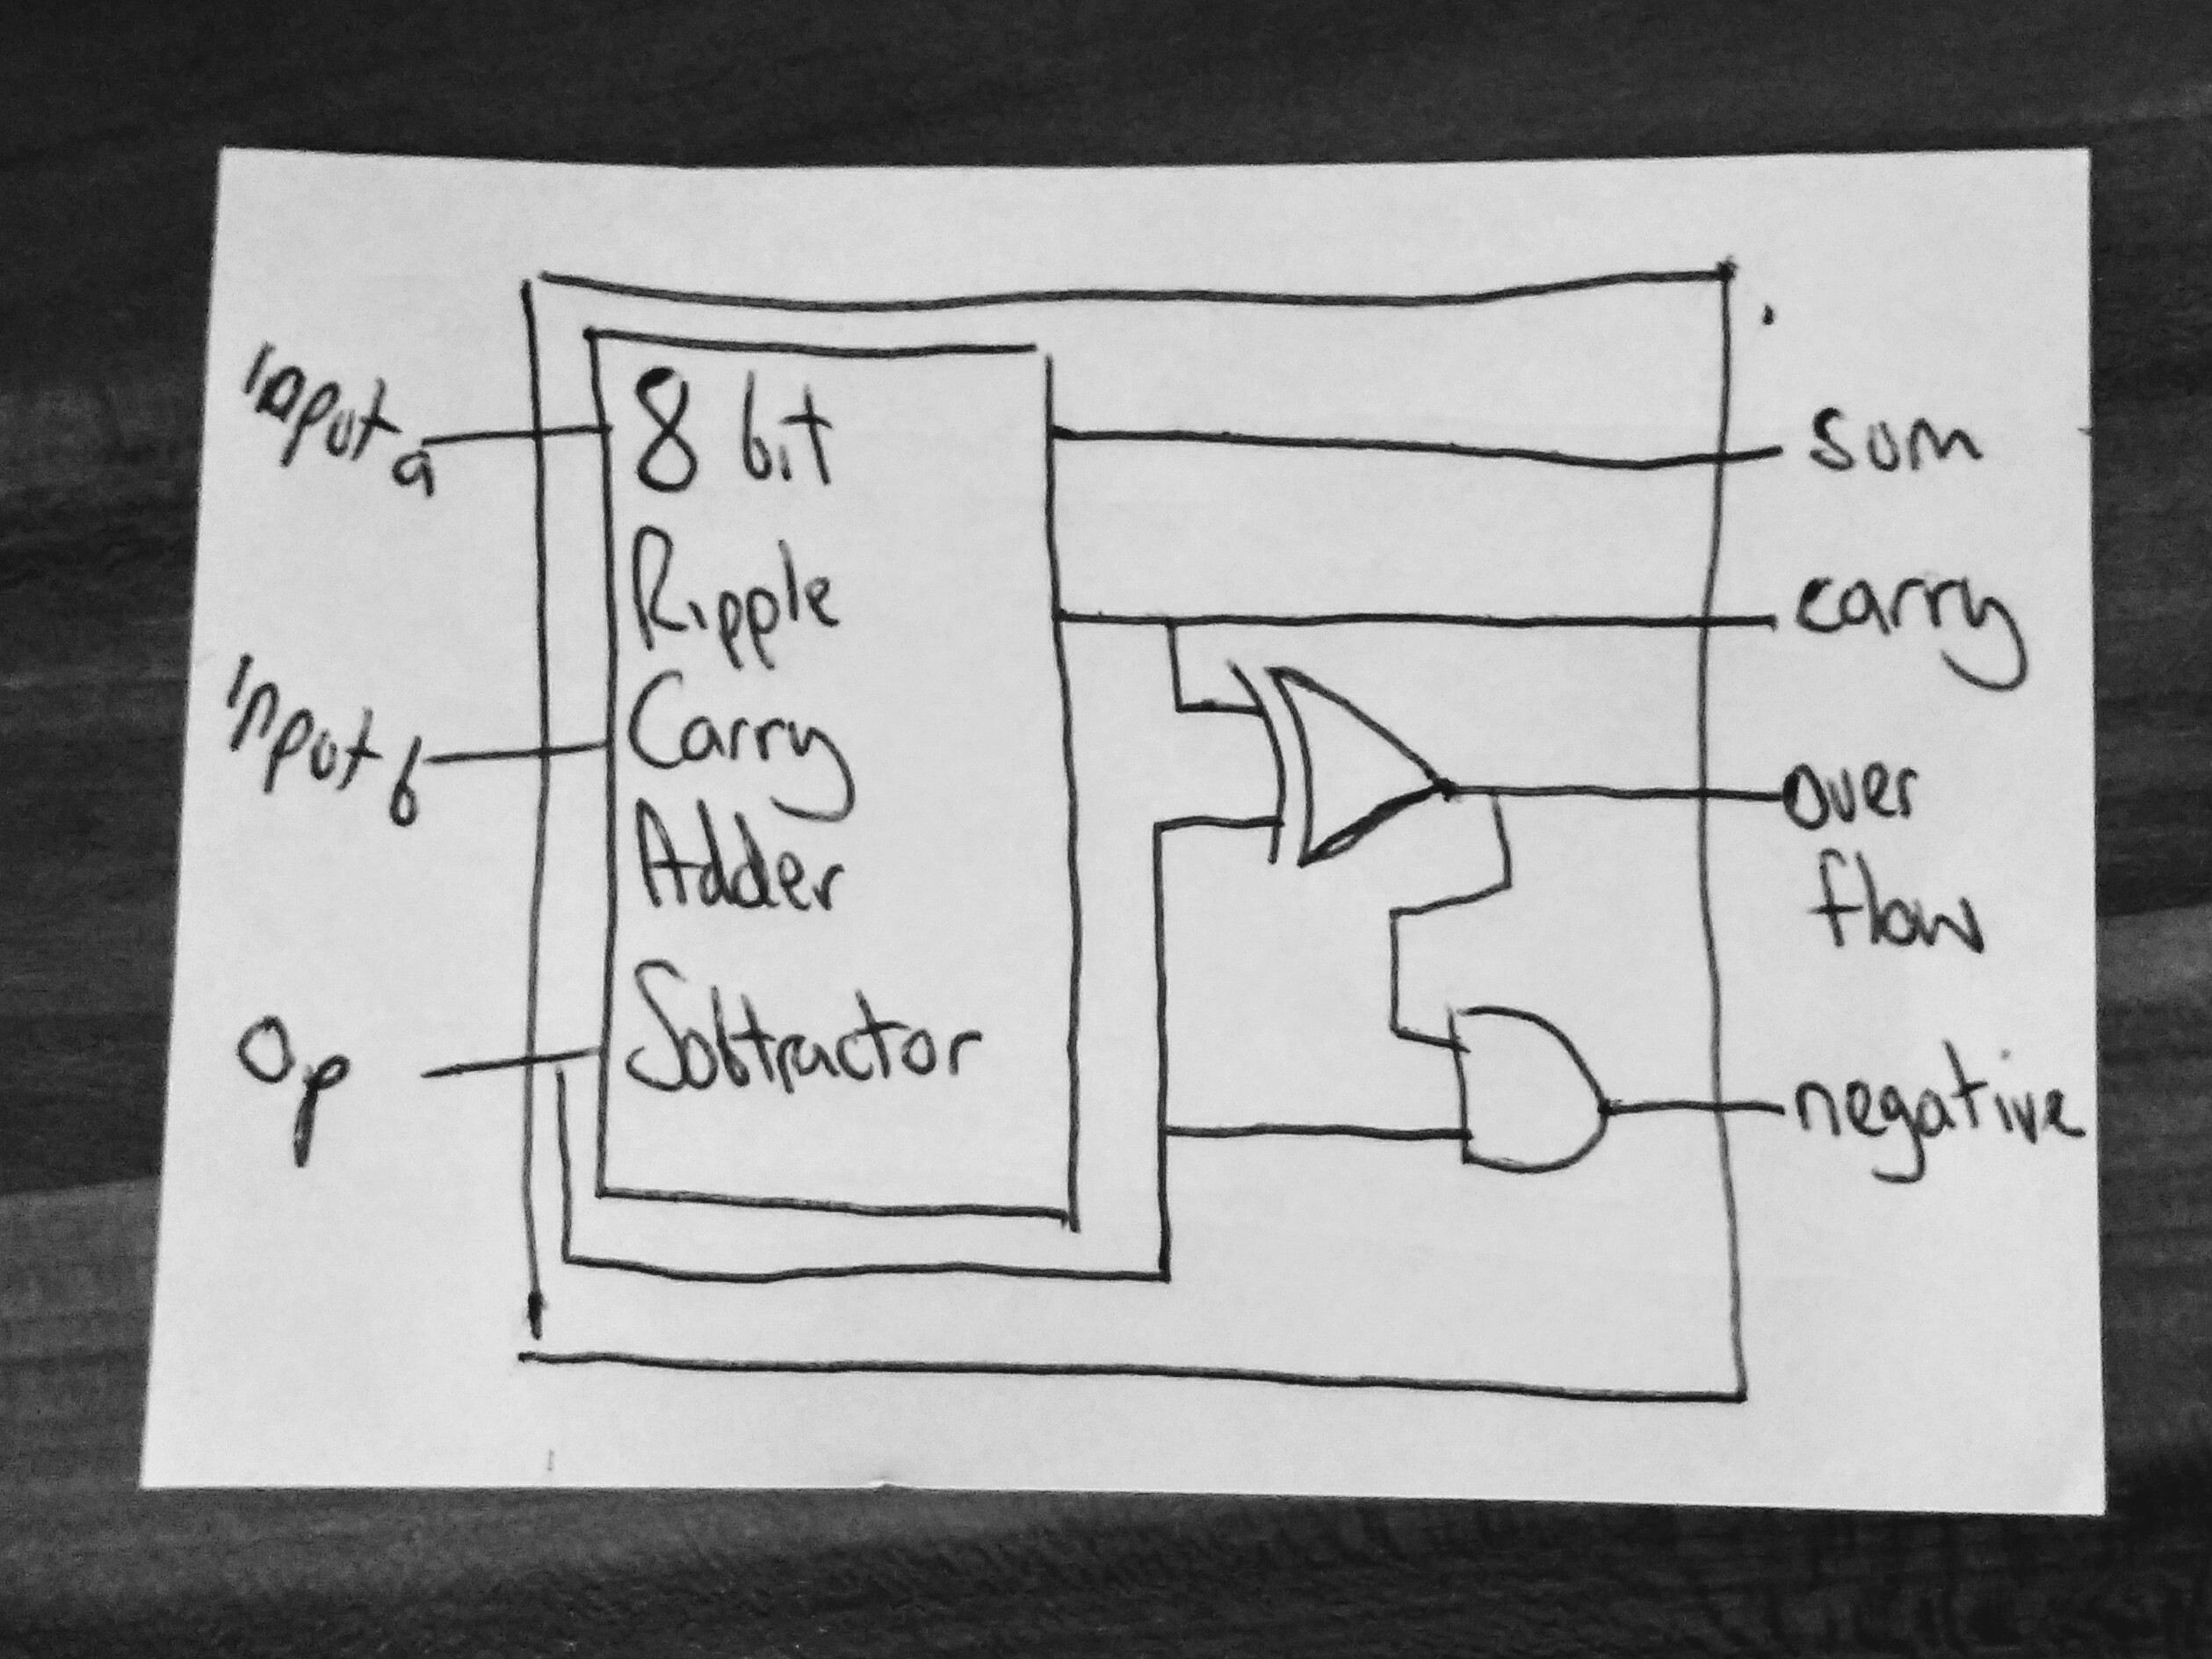 Input a
Input b
Op
8 bit
Ripple
Carry
Adder
Subtractor
Sum
carry
Over
flow
negative